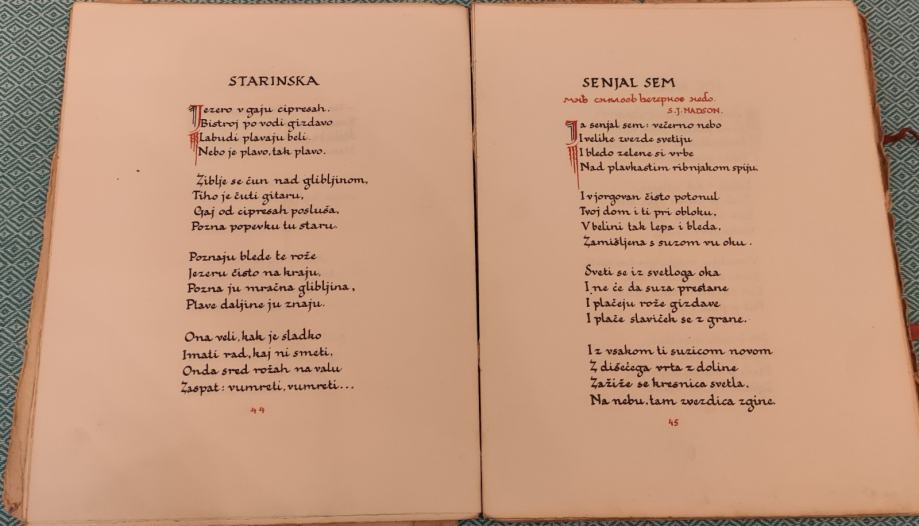 STARINSKA
Jezero v gaju cipresah.
Bistroj po vodi gizdavo
Labudi plavaju beli.
Nebo je plavo, tak plavo.
Ziblje se čun nad glibljinom,
Tiho je čuti gitaru,
Gaj od cipresah posluša,
Pozna popevku tu staru.
Poznaju blede te rože
Jezeru čisto na kraju,
Pozna ju mračna glibljina,
Plave daljine ju znaju.
Ona veli, kak je sladko
Imati rad, kaj ni smeti,
Onda sred rožah na valu
Zaspat: vumreti, vumreti...
44
SENJAL SEM
мнѣ снилось вечерное небо.
S.J. NADSON.
Ja senjal sem: večerno nebo
I velike zvezde svetiju
I bledo zelene si vrbe
Nad plavkastim ribnjakom spiju.
I vjorgovan čisto potonul
Tvoj dom i ti pri obloku,
V belini tak lepa i bleda,
Zamišljena s suzom vu oku.
Sveti se iz svetloga oka
I ne će da suza prestane
I plačeju rože gizdave
I plače slaviček se z grane.
Iz vsakom ti suzicom novom
Z dišećega vrta z doline
Zažiže se kresnica svetla,
Na nebu, tam zvezdica zgine.
45